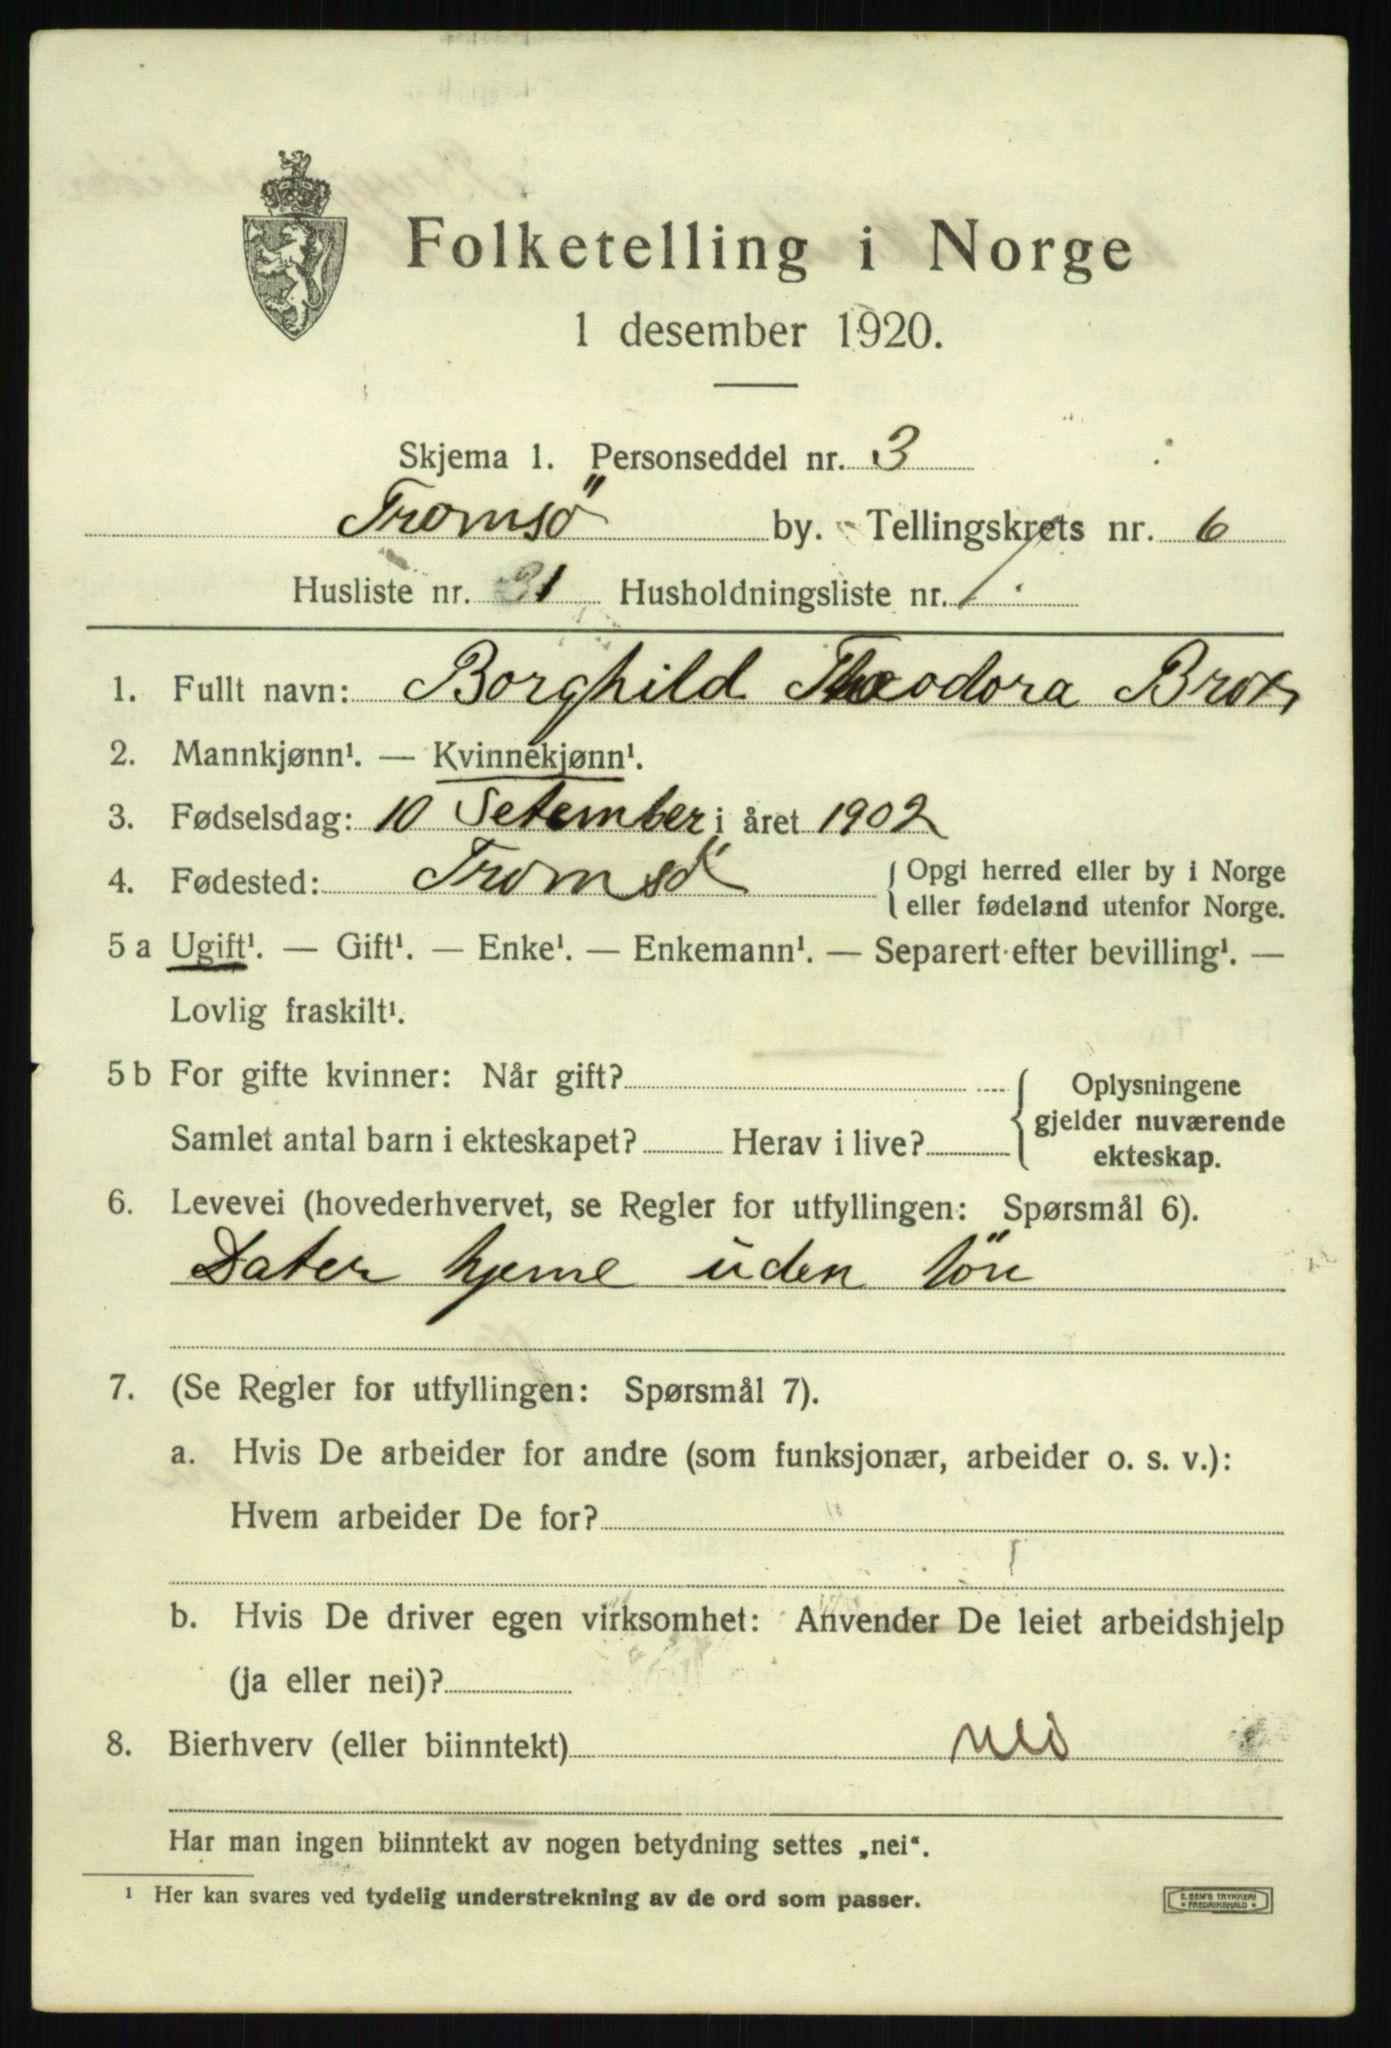 Folketelling i Norge
1 desember 1920.
Skjema 1. Personseddel nr. 3
Tromsö by. Tellingskrets nr. 6
Husliste nr. 31 Husholdningsliste nr. 1
1. Fullt navn: Borghild Theodora Brox
2. Mannkjønn¹. — Kvinnekjønn¹.
3. Fødselsdag: 10 Setember i året 1902
4. Fødested: Tromsö { Opgi herred eller by i Norge
eller fødeland utenfor Norge.
5 a Ugift¹. — Gift¹. — Enke¹. — Enkemann¹. — Separert efter bevilling¹. —
Lovlig fraskilt¹.
5 b For gifte kvinner: Når gift? { Oplysningene
gjelder nuværende
Samlet antal barn i ekteskapet? Herav i live?
ekteskap.
6. Levevei (hovederhvervet, se Regler for utfyllingen: Spørsmål 6).
Dater hjeme uden lön
7. (Se Regler for utfyllingen: Spørsmål 7).
a. Hvis De arbeider for andre (som funksjonær, arbeider o. s. v.):
Hvem arbeider De for?
b. Hvis De driver egen virksomhet: Anvender De leiet arbeidshjelp
(ja eller nei)?
8. Bierhverv (eller biinntekt) nei
Har man ingen biinntekt av nogen betydning settes „nei“.
¹ Her kan svares ved tydelig understrekning av de ord som passer.
E. SEM'S TRYKKERI
* FREDRIKSHALD *